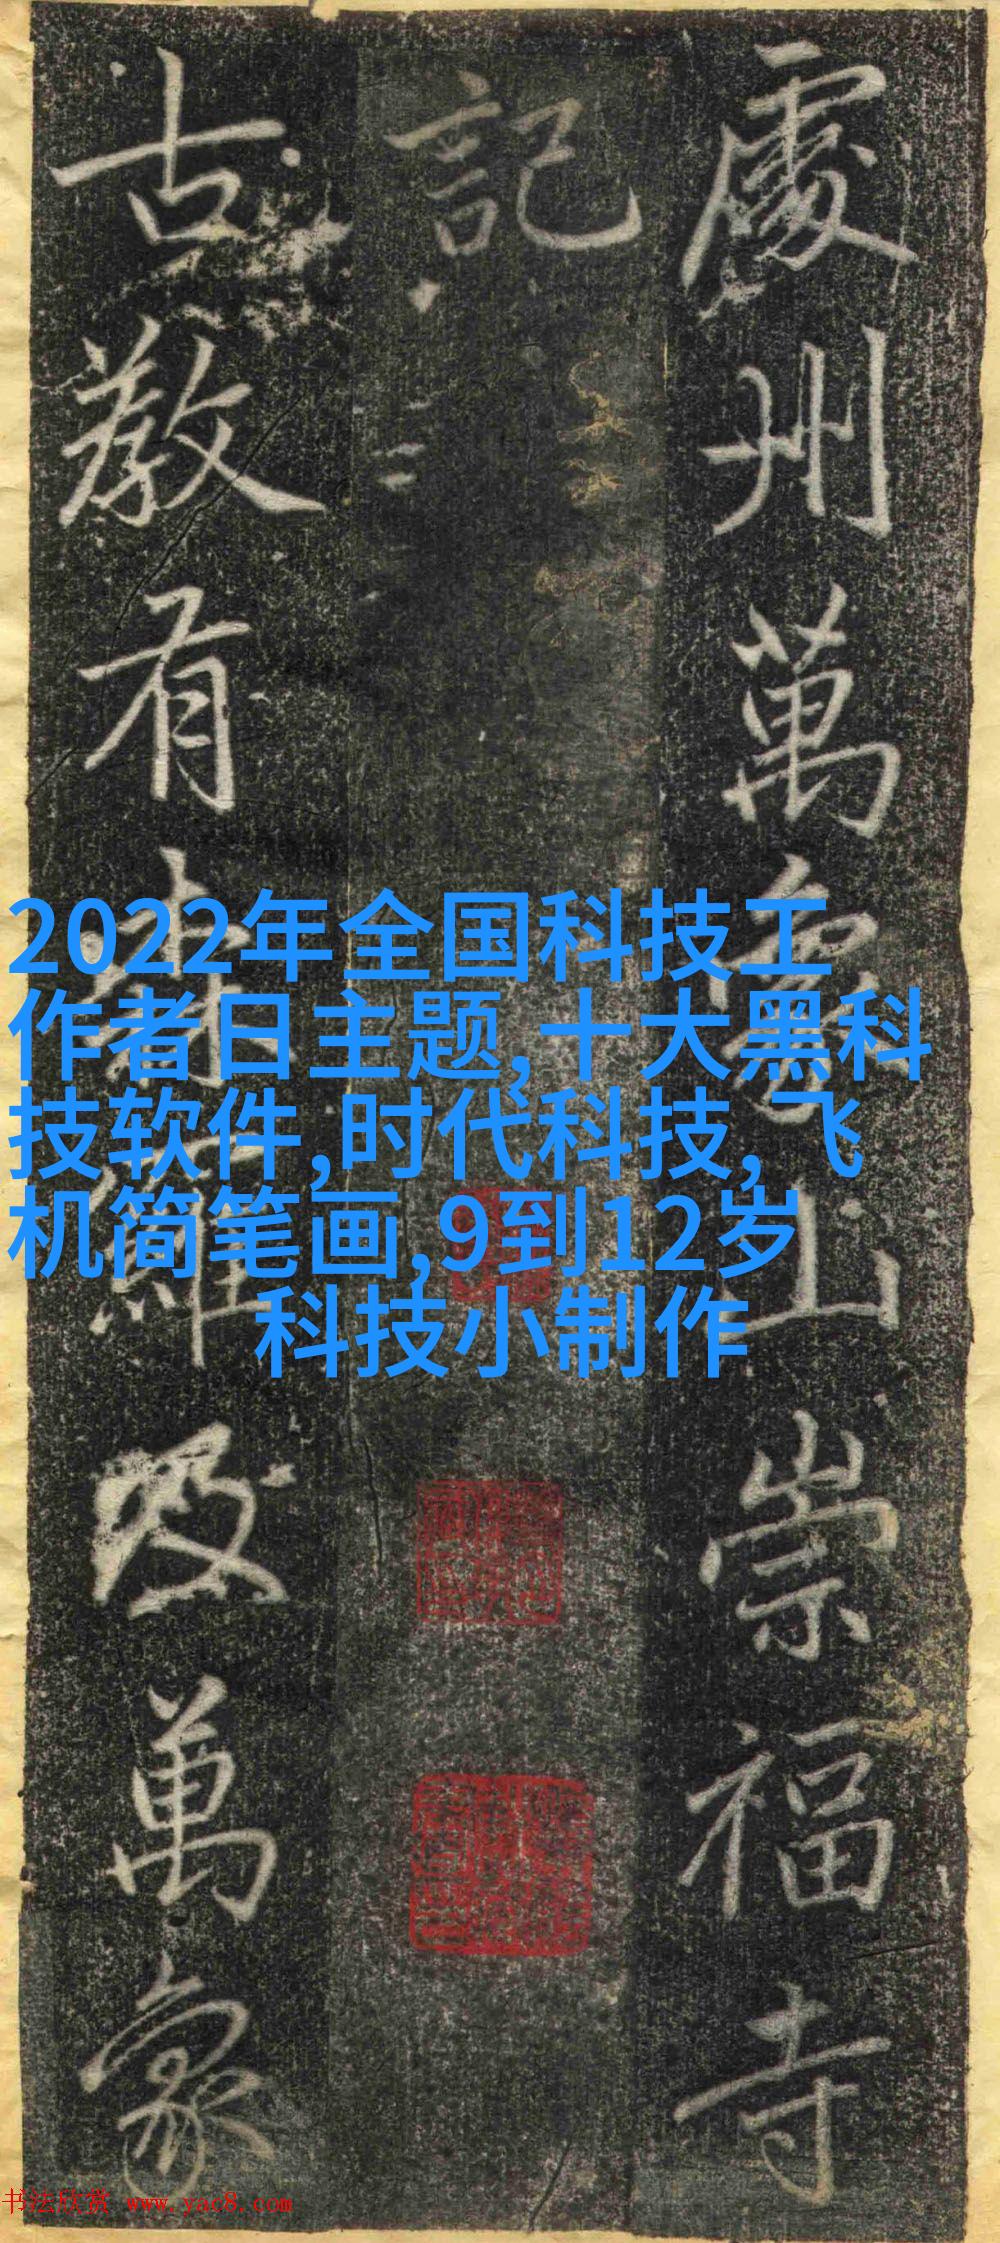 處州萬象山崇福寺
記
古教有
及萬象
2022年全国科技工
作者日主题,十大黑科
技软件,时代科技,飞
机简笔画,9到12岁
科技小制作
书法欣赏 www.yac8.com